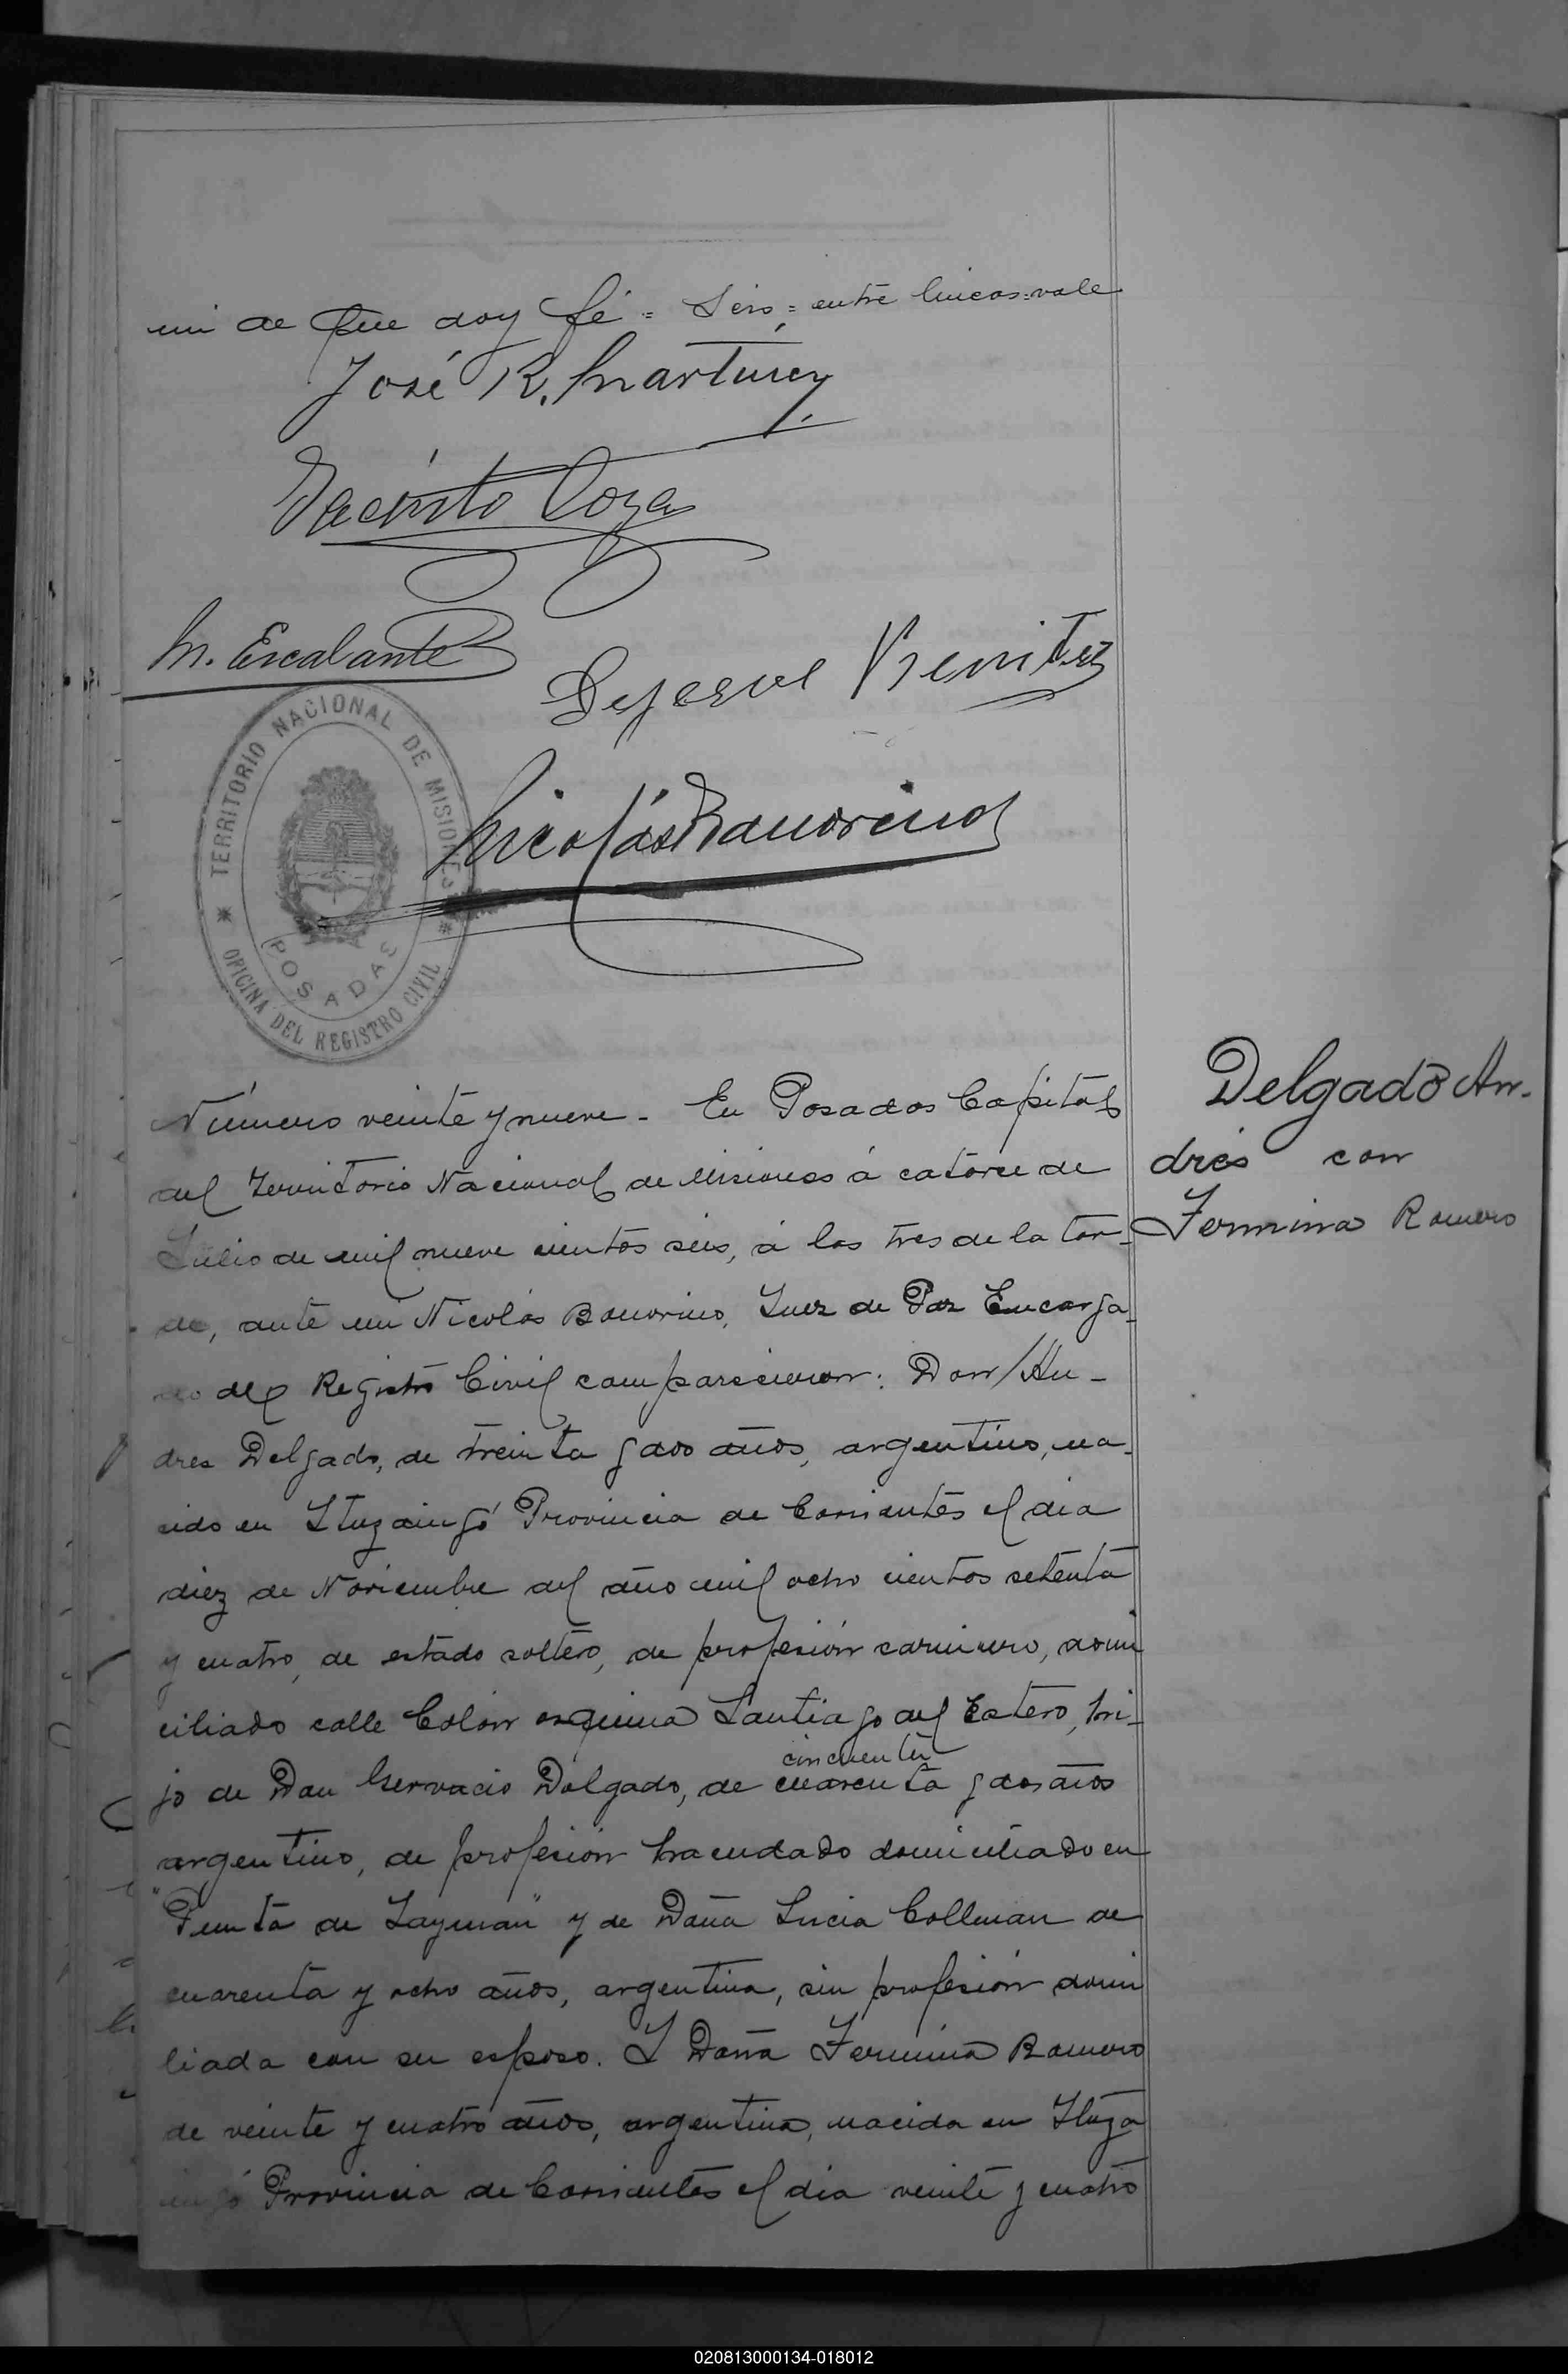 mi de que doy fé = Seis = entre lineas = vale
José R. Martinez
Jacinto Coza
M. Escalante
Benitez
Nicolás Bonorino
TERRITORIO NACIONAL DE MISIONES
POSADAS
OFICINA DEL REGISTRO CIVIL
Delgado An-
drés con
Fermina Romero
Número veinte y nueve - En Posadas Capital
del Territorio Nacional de Misiones á catorce de
Julio de mil nueve cientos seis, á las tres de la tar-
de, ante mi Nicolás Bonorino, Juez de Paz Encarga-
do del Registro Civil comparecieron: Don An-
dres Delgado, de treinta y dos años, argentino, na-
cido en Ituzaingó Provincia de Corrientes el dia
diez de Noviembre del año mil ocho cientos setenta
y cuatro, de estado soltero, de profesión carnicero, domi
ciliado calle Colón esquina Santiago del Estero, hi-
cincuenta
jo de Don Gervacio Delgado, de cuarenta y dos años
argentino, de profesión hacendado domiciliado en
"Punta de " y de Doña Lucia Collman de
cuarenta y ocho años, argentina, sin profesión domi
liada con su esposo. I Doña Fermina Romero
de veinte y cuatro años, argentina, nacida en Ituza
ingó Provincia de Corrientes el dia veinte y cuatro
020813000134-018012